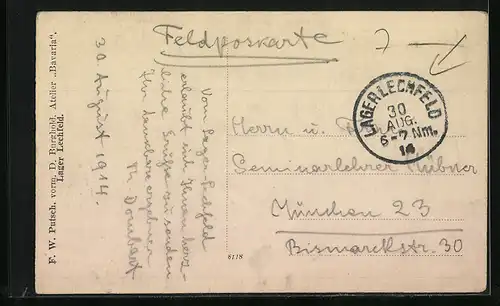 Feldpostkarte
LAGER LECHFELD
30
AUG.
6-7 Nm.
14
Herrn u. Frau
Seminarlehrer Hübner
München 23
Bismarckstr. 30
Vom Lager Lechfeld
erlaubt sich Ihnen herz-
liche Grüße zu senden
Ihr dankbar ergebener
Th. Dombart
30 August 1914.
F. W. Putsch, vorm. D. Burghold, Atelier „Bavaria“.
Lager Lechfeld.
6178